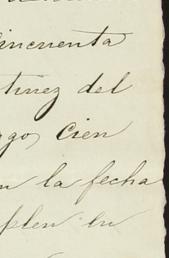 incuenta
tinez del
go, cien
n la fecha
plen en